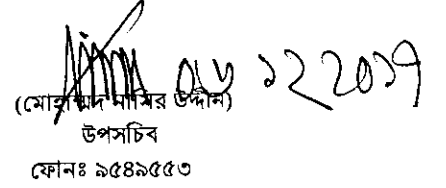 ১২ ২০১৭
(মোহাম্মদ নাসির উদ্দীন)
উপসচিব
ফোনঃ ৯৫৪৯৫৫৩